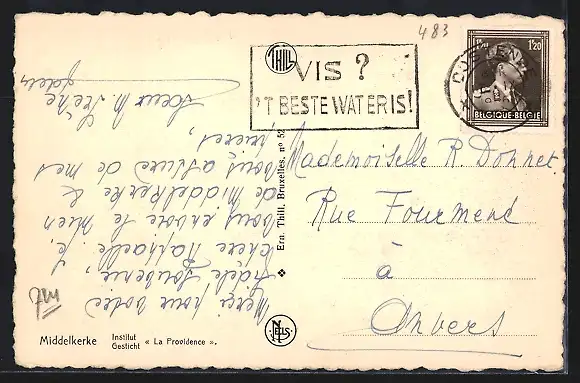 483
VIS ?
'T BESTE WAT ER IS!
THILL
1F20 1F20
BELGIQUE-BELGIË
Mademoiselle R. Donnet
Rue Fourment
à
Anvers
Merci pour votre
fidèle Souvenir,
chère Raphaelle. Je
vous envoie le mien
de Middelkerke &
vous assure de mes
prières,
Soeur M.
Ern. Thill, Bruxelles, n° 5
NELS
Middelkerke
Institut
Gesticht « La Providence ».